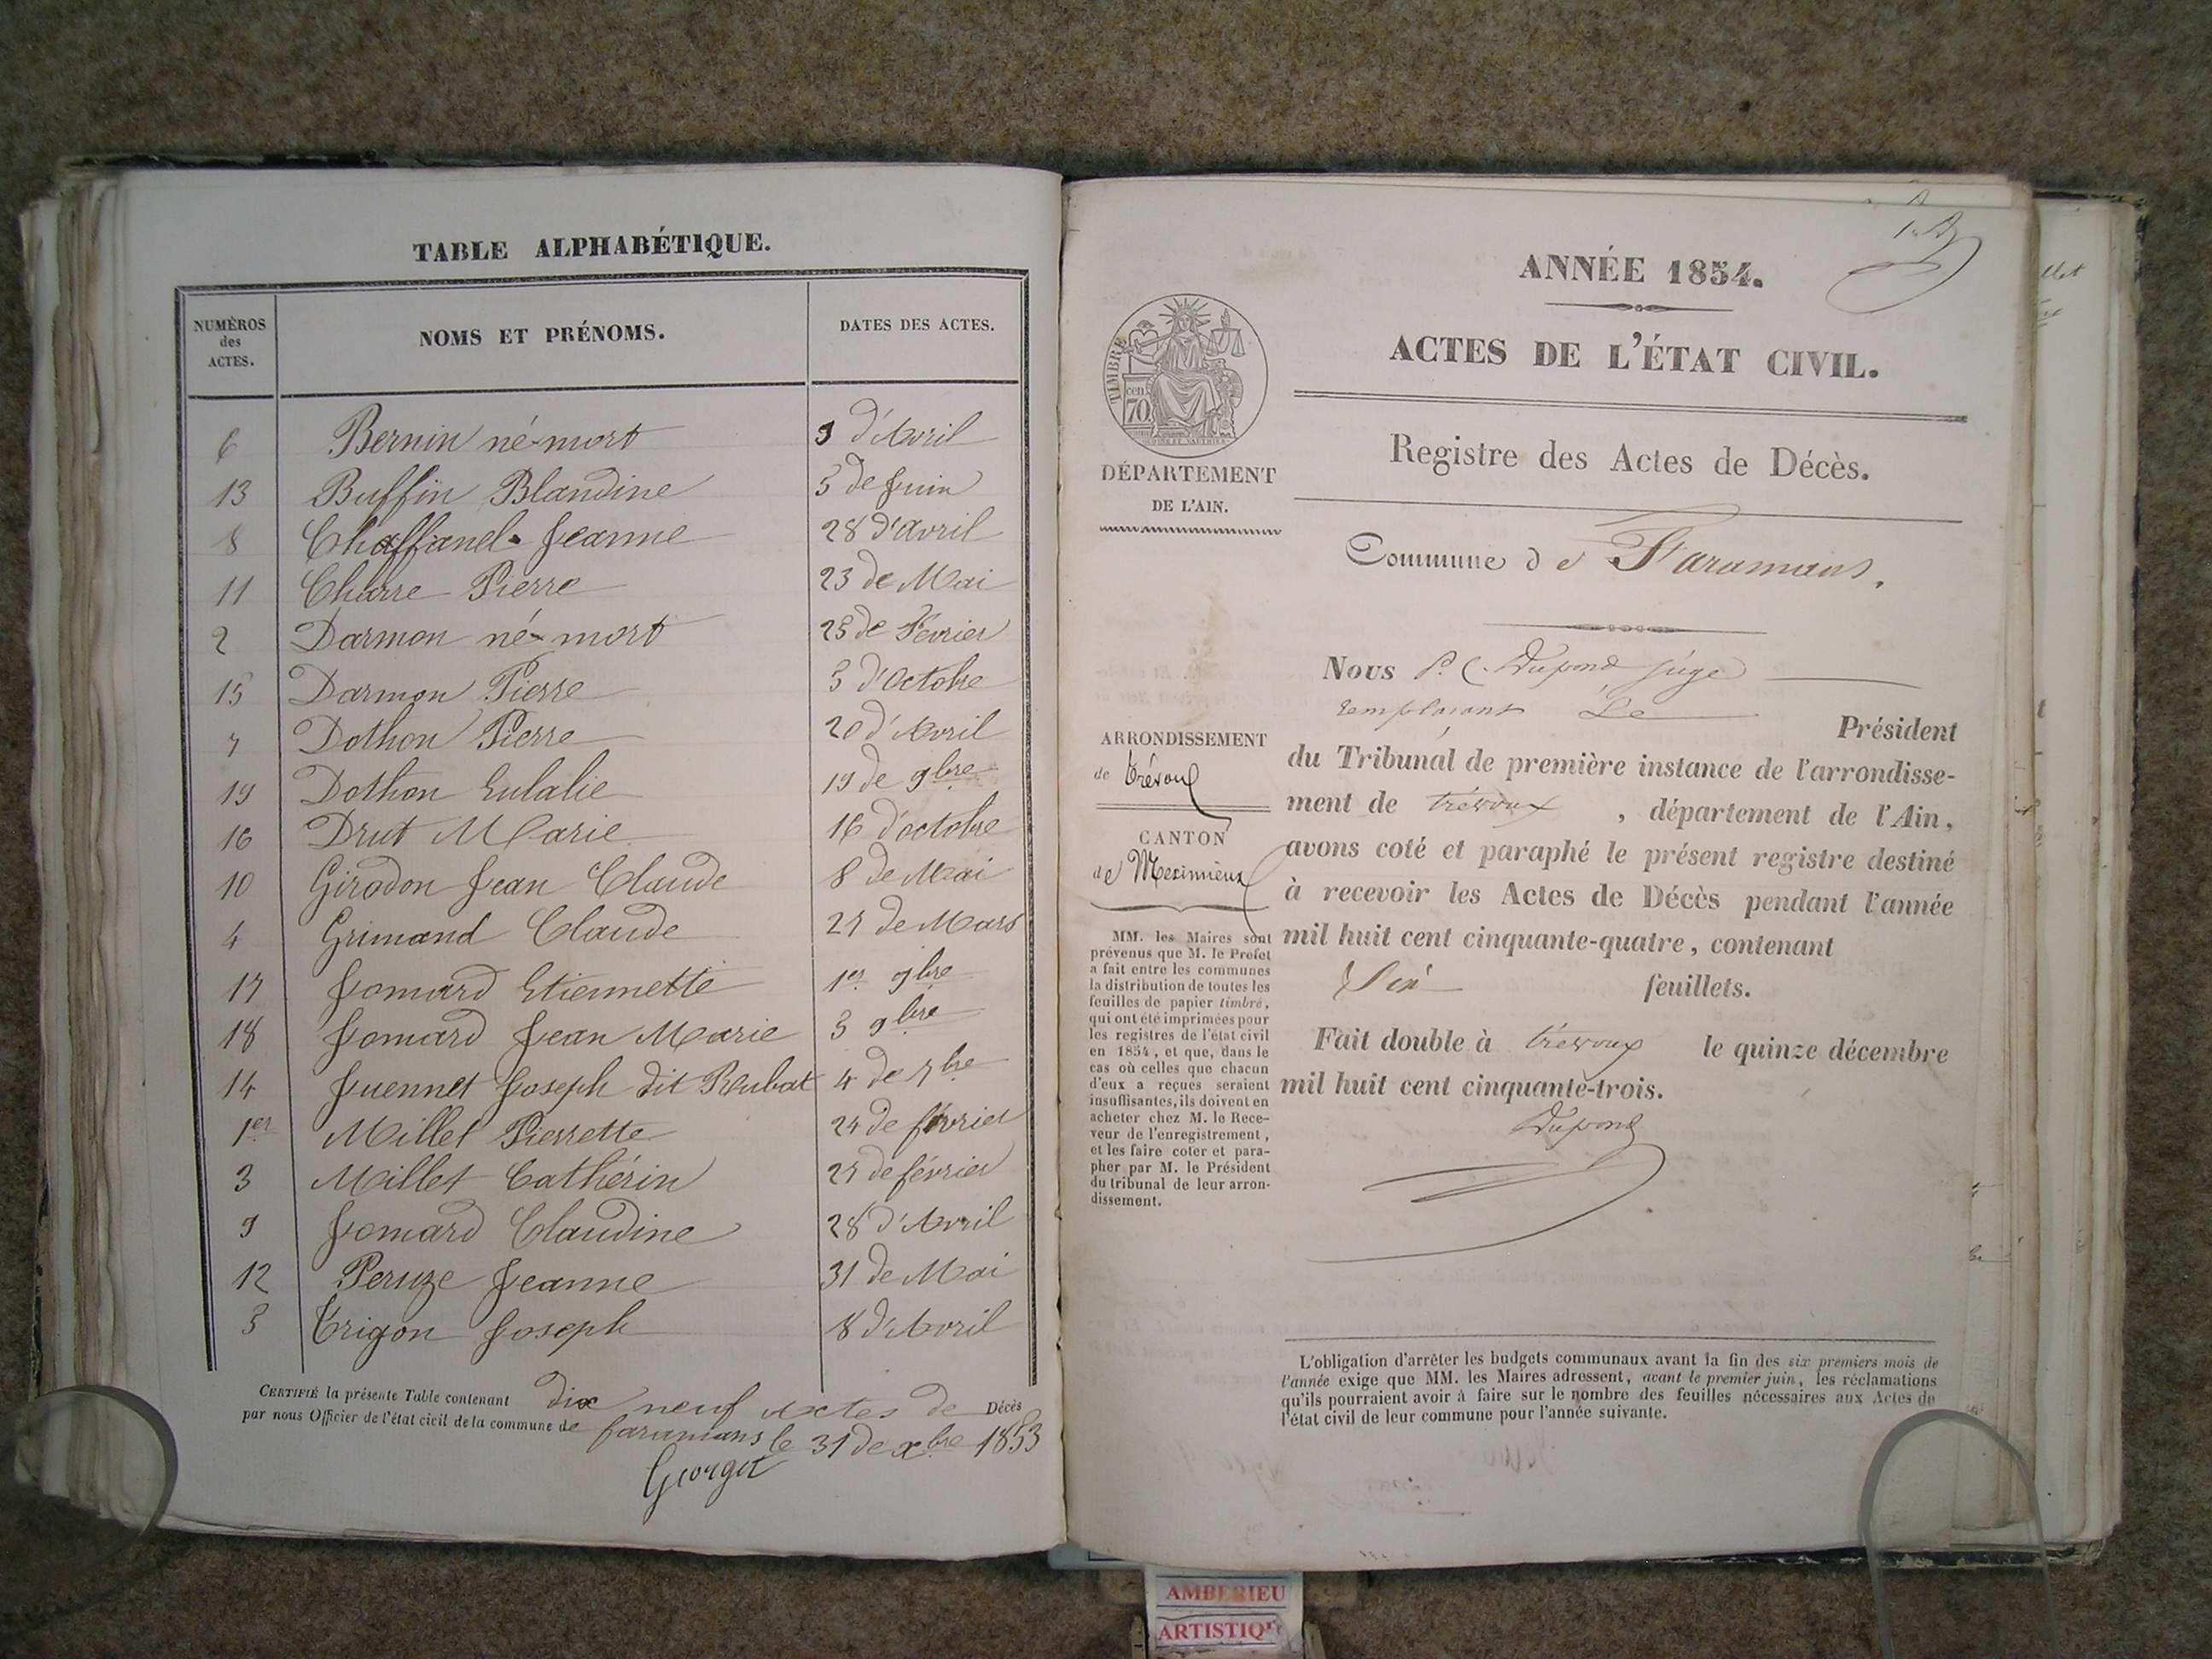 TABLE ALPHABÉTIQUE.
NUMÈROS des ACTES.
NOMS ET PRÉNOMS.
DATES DES ACTES.
6 Bernin né-mort 9 d'Avril
13 Buffin Blandine 5 de Juin
8 Chaffanel Jeanne 28 d'avril
11 Charre Pierre 23 de Mai
2 Darmon né-mort 25 de Février
15 Darmon Pierre 5 d'Octobre
7 Dothon Pierre 20 d'Avril
19 Dothon Eulalie 19 de 9bre
16 Drut Marie 16 d'octobre
10 Girodon Jean Claude 8 de Mai
4 Grimand Claude 27 de Mars
17 Jomard Etiennette 1er 9bre
18 Jomard Jean Marie 5 9bre
14 Juennet Joseph dit Rubat 4 de 7bre
1er Millet Pierrette 24 de février
3 Millet Cathérin 27 de février
9 Jomard Claudine 28 d'Avril
12 Peruze Jeanne 31 de Mai
5 Trigon Joseph 8 d'Avril
CERTIFIÉ la présente Table contenant dix neuf Actes de Décès
par nous Officier de l'état civil de la commune de faramans le 31 de xbre 1853
Georget
ANNÉE 1854.
ACTES DE L'ÉTAT CIVIL.
TIMBRE
cen
70
DÉPARTEMENT
DE L'AIN.
Registre des Actes de Décès.
Commune de Faramans.
Nous P. C. Dupond juge
remplaçant Le Président
du Tribunal de première instance de l'arrondisse-
ment de trévoux , département de l'Ain,
avons coté et paraphé le présent registre destiné
à recevoir les Actes de Décès pendant l'année
mil huit cent cinquante-quatre, contenant
Six feuillets.
Fait double à trévoux le quinze décembre
mil huit cent cinquante-trois.
Dupond
ARRONDISSEMENT
de Trévoux
CANTON
de Meximieux
MM. les Maires sont
prévenus que M. le Préfet
a fait entre les communes
la distribution de toutes les
feuilles de papier timbré,
qui ont été imprimées pour
les registres de l'état civil
en 1854, et que, dans le
cas où celles que chacun
d'eux a reçues seraient
insuffisantes, ils doivent en
acheter chez M. le Rece-
veur de l'enregistrement,
et les faire coter et para-
pher par M. le Président
du tribunal de leur arron-
dissement.
L'obligation d'arrêter les budgets communaux avant la fin des six premiers mois de
l'année exige que MM. les Maires adressent, avant le premier juin, les réclamations
qu'ils pourraient avoir à faire sur le nombre des feuilles nécessaires aux Actes de
l'état civil de leur commune pour l'année suivante.
AMBERIEU
ARTISTIQ